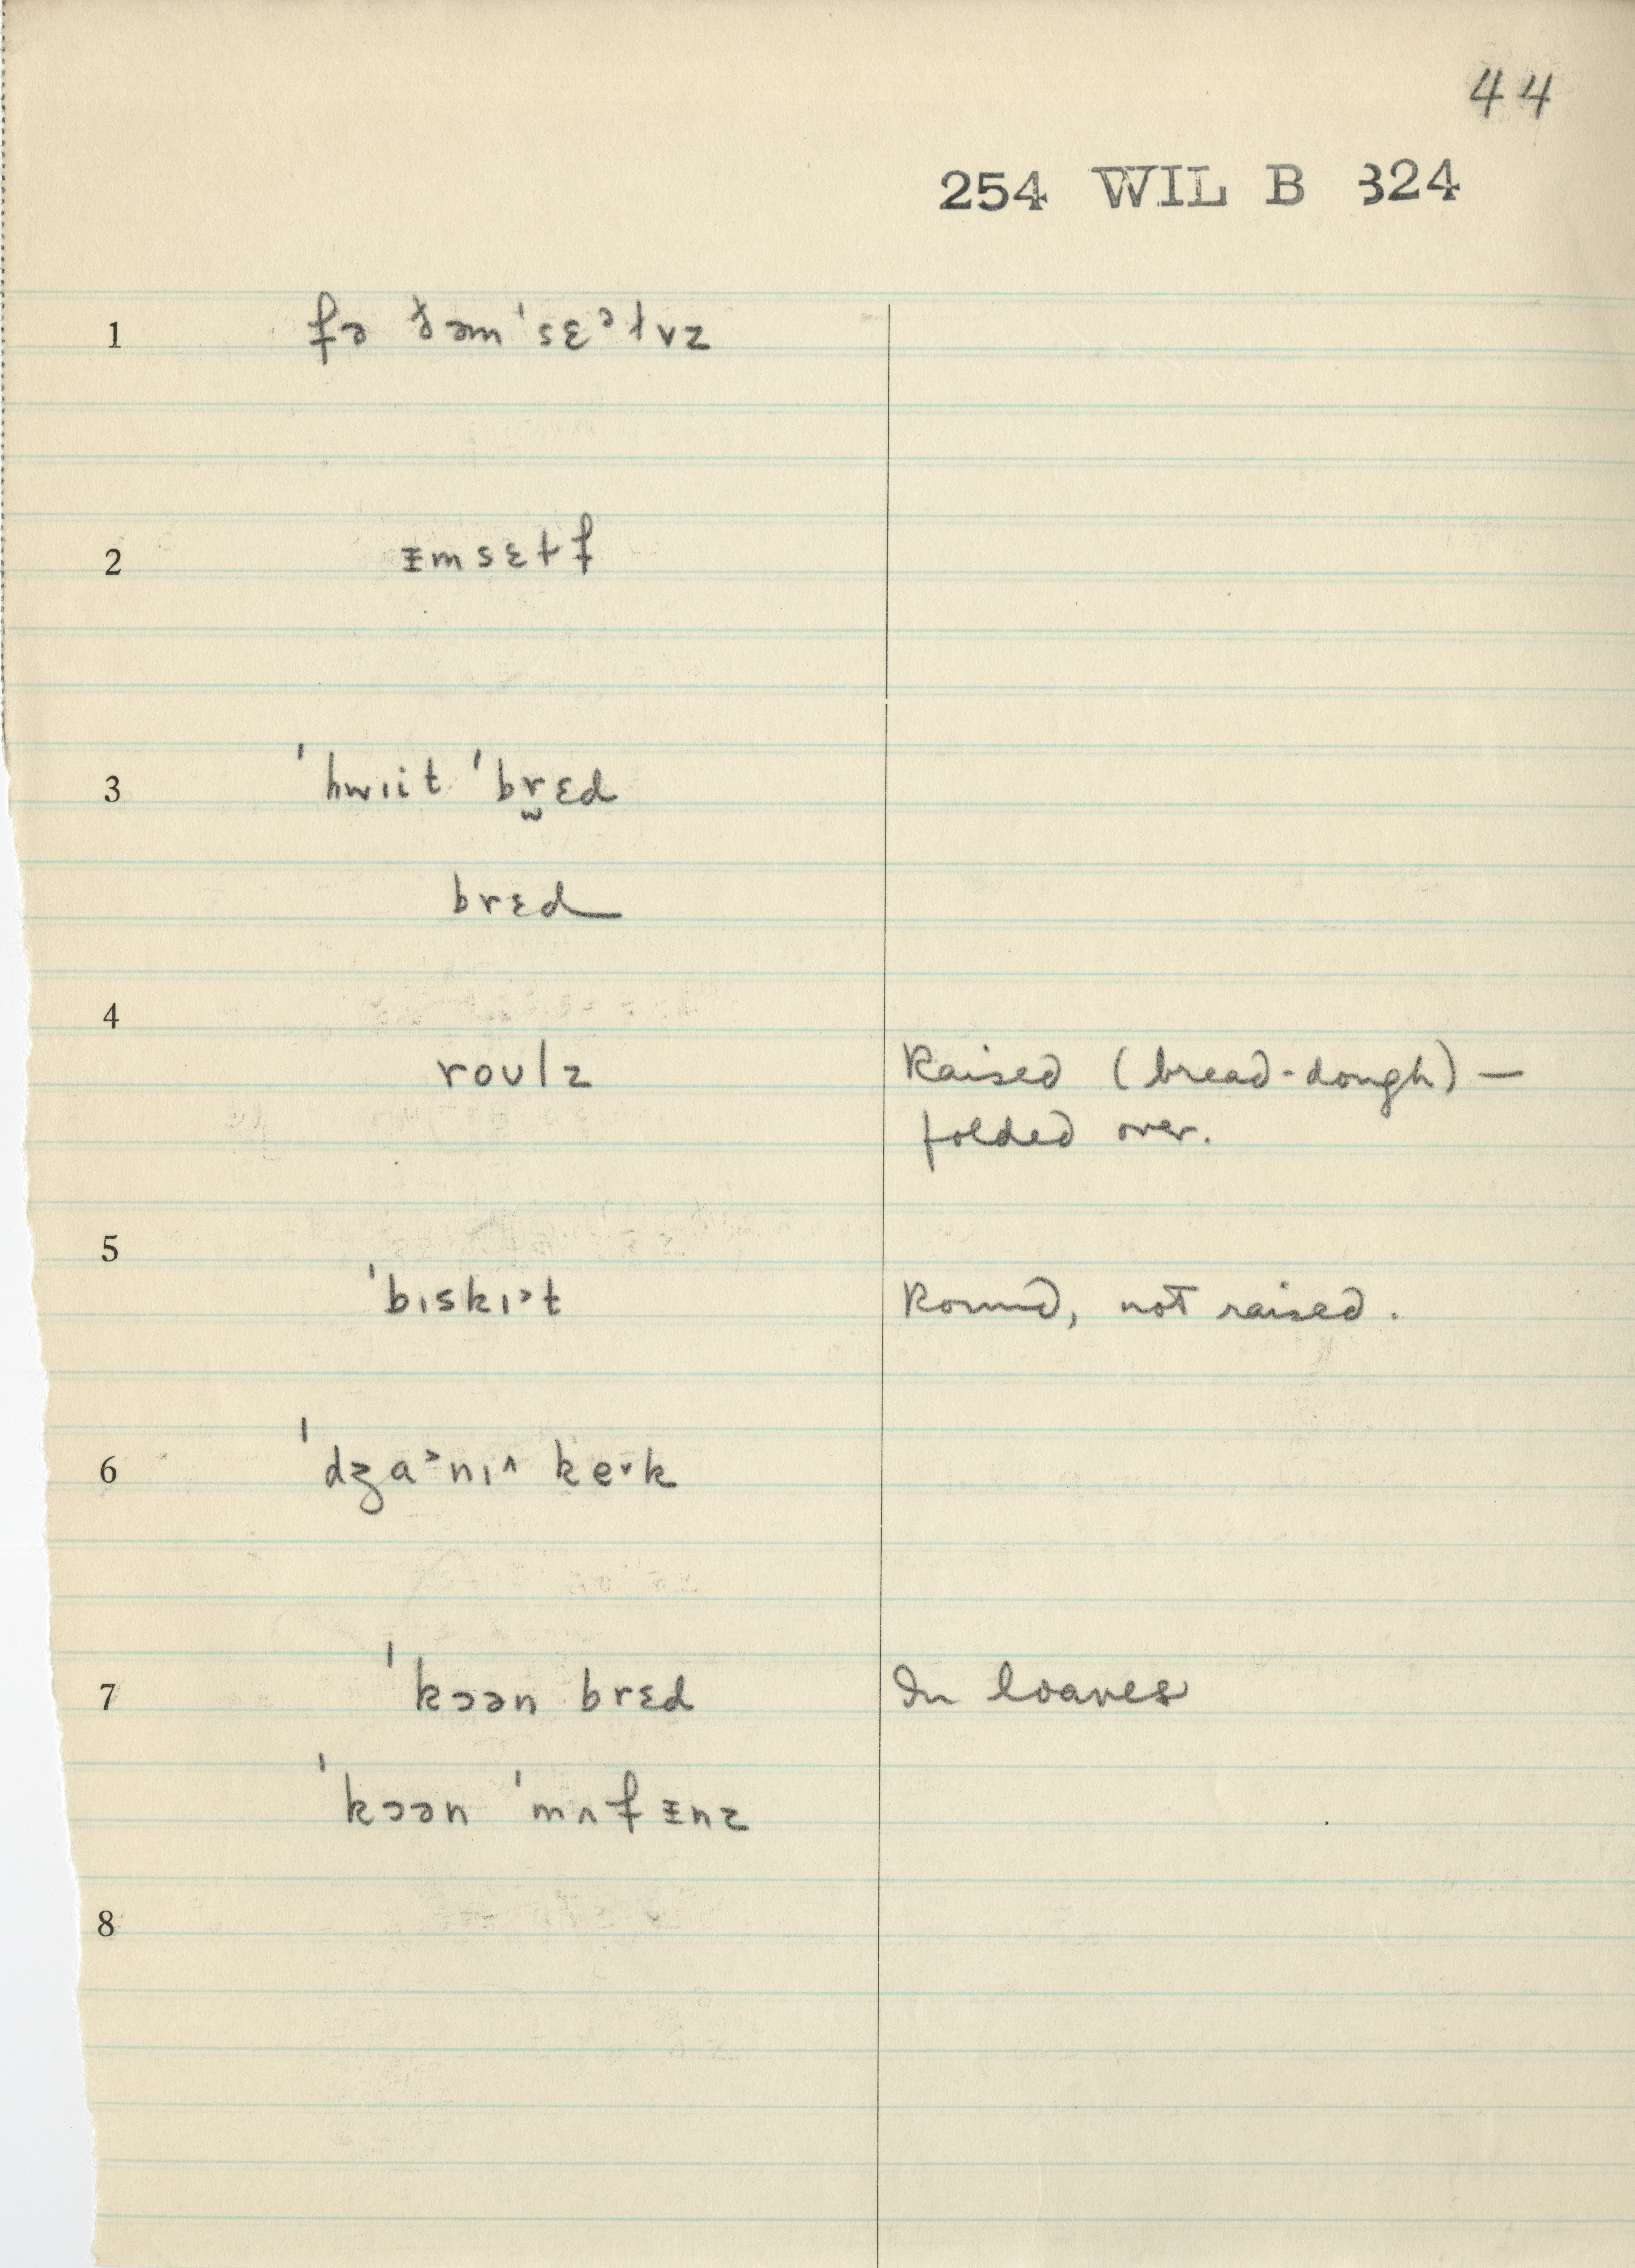 44
254 WIL B 324
1 fə ðəmˈsɛᵊɫvz
2 ᵻmsɛɫf
3 ˈhwɪit ˈbr̫ɛd
brɛd
4
roʊlz Raised (bread-dough) —
folded over.
5
ˈbɪskɪ˃t Round, not raised.
6 ˈdʒa˃nɪ^ keˇk
7 ˈkɔən brɛd In loaves
ˈkɔən ˈmʌfᵻnz
8